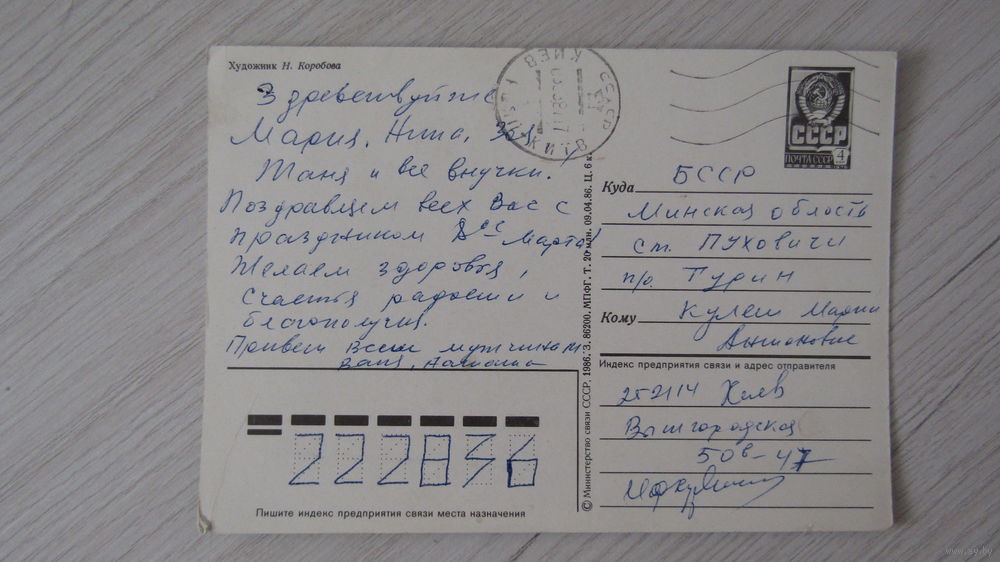 Художник Н. Коробова
Здравствуйте
Мария, Нина,
Таня и все внучки.
Поздравляем всех Вас с
праздником 8ое Марта
Желаем здоровья,
счастья радости и
благополучия.
Привет всем мужчинам
Ваня,
КИЕВ
СССР
ПОЧТА СССР 4
Куда БССР
Минская область
ст. Пуховичи
п/о Турин
Кому Кулеш Марии
Антоновне
Индекс предприятия связи и адрес отправителя
252114 Киев
Вышгородская
50в-47
222836
Пишите индекс предприятия связи места назначения
© Министерство связи СССР, 1986. З. 86200. МПФГ. Т. 20 млн. 09.04.86. Ц. 6 к.
www.ay.by